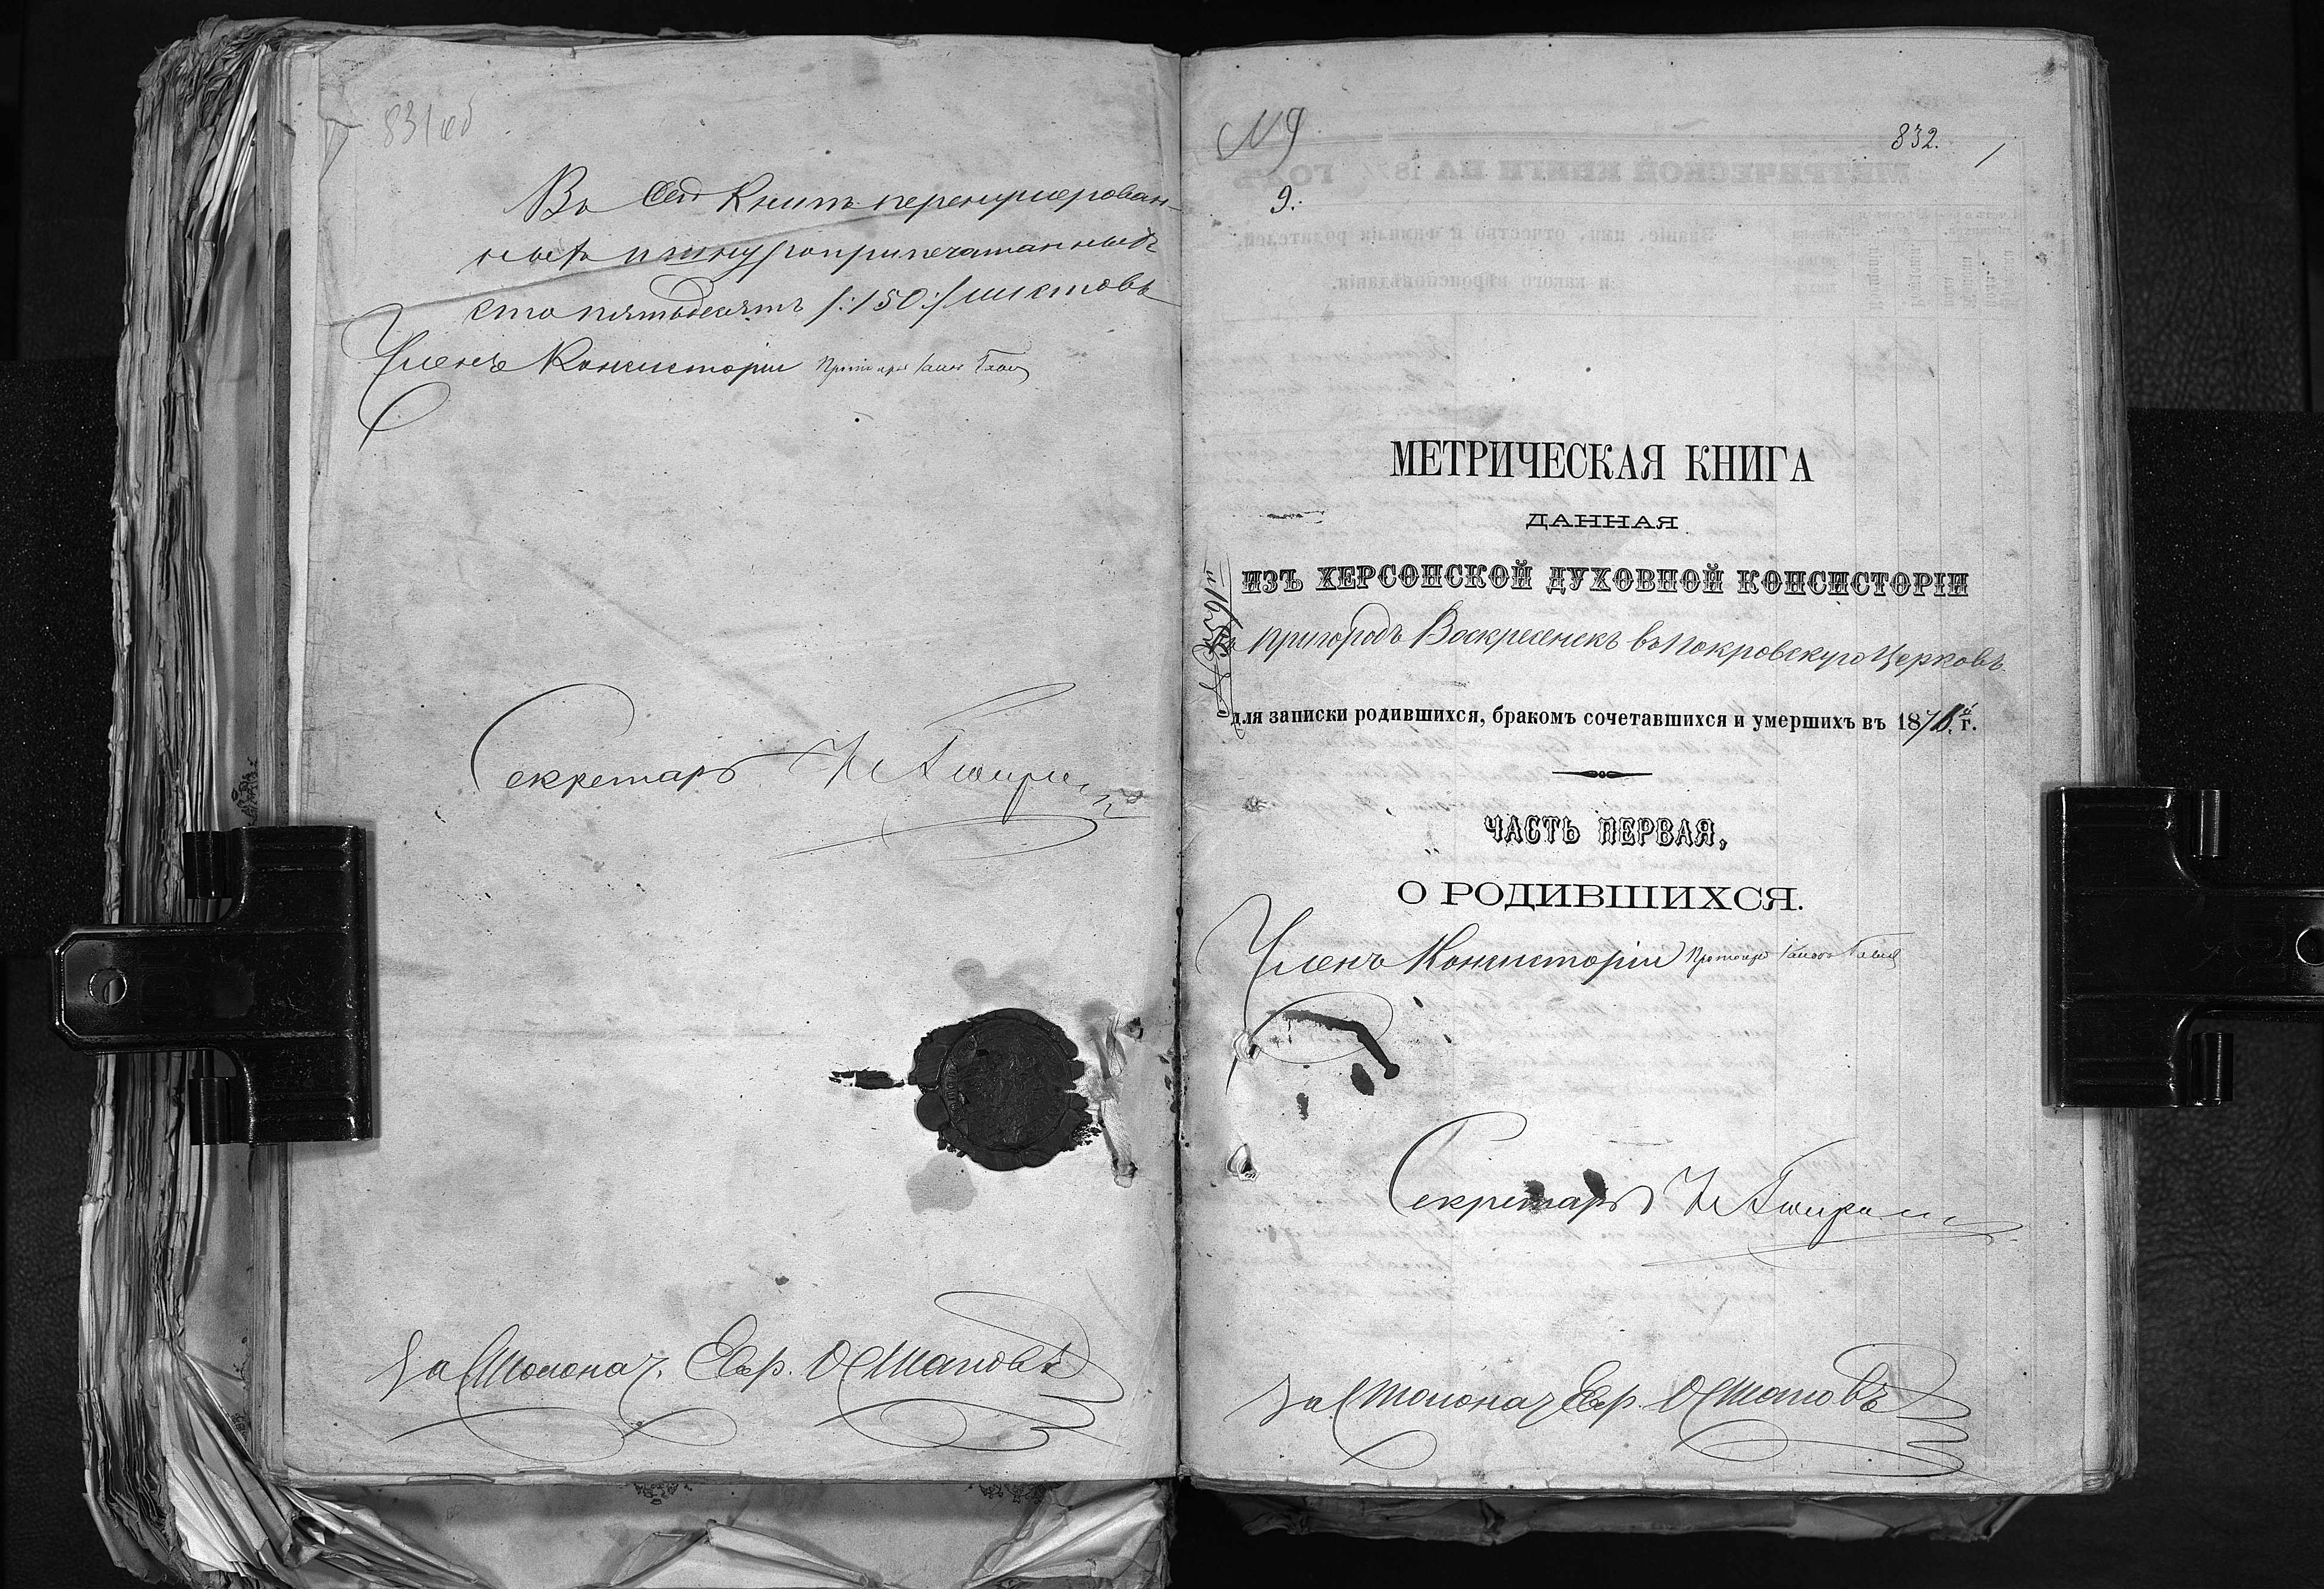 831 об
Въ сей Книгѣ перенумерован-
ныхъ и шнуроприпечатанныхъ
сто пятьдесятъ /:150:/ листовъ
Членъ Консисторіи Протоіерей
Секретарь
За Столонач. Евр. Остаповъ
N 9
832.
1
9.
МЕТРИЧЕСКАЯ КНИГА
ДАННАЯ
ИЗЪ ХЕРСОНСКОЙ ДУХОВНОЙ КОНСИСТОРІИ
въ пригородъ Воскресенскъ въ Покровскую Церковь
для записки родившихся, бракомъ сочетавшихся и умершихъ въ 18 г.
ЧАСТЬ ПЕРВАЯ,
О РОДИВШИХСЯ.
Членъ Консисторіи Протоіерей
Секретарь
За Столонач Евр. Остаповъ